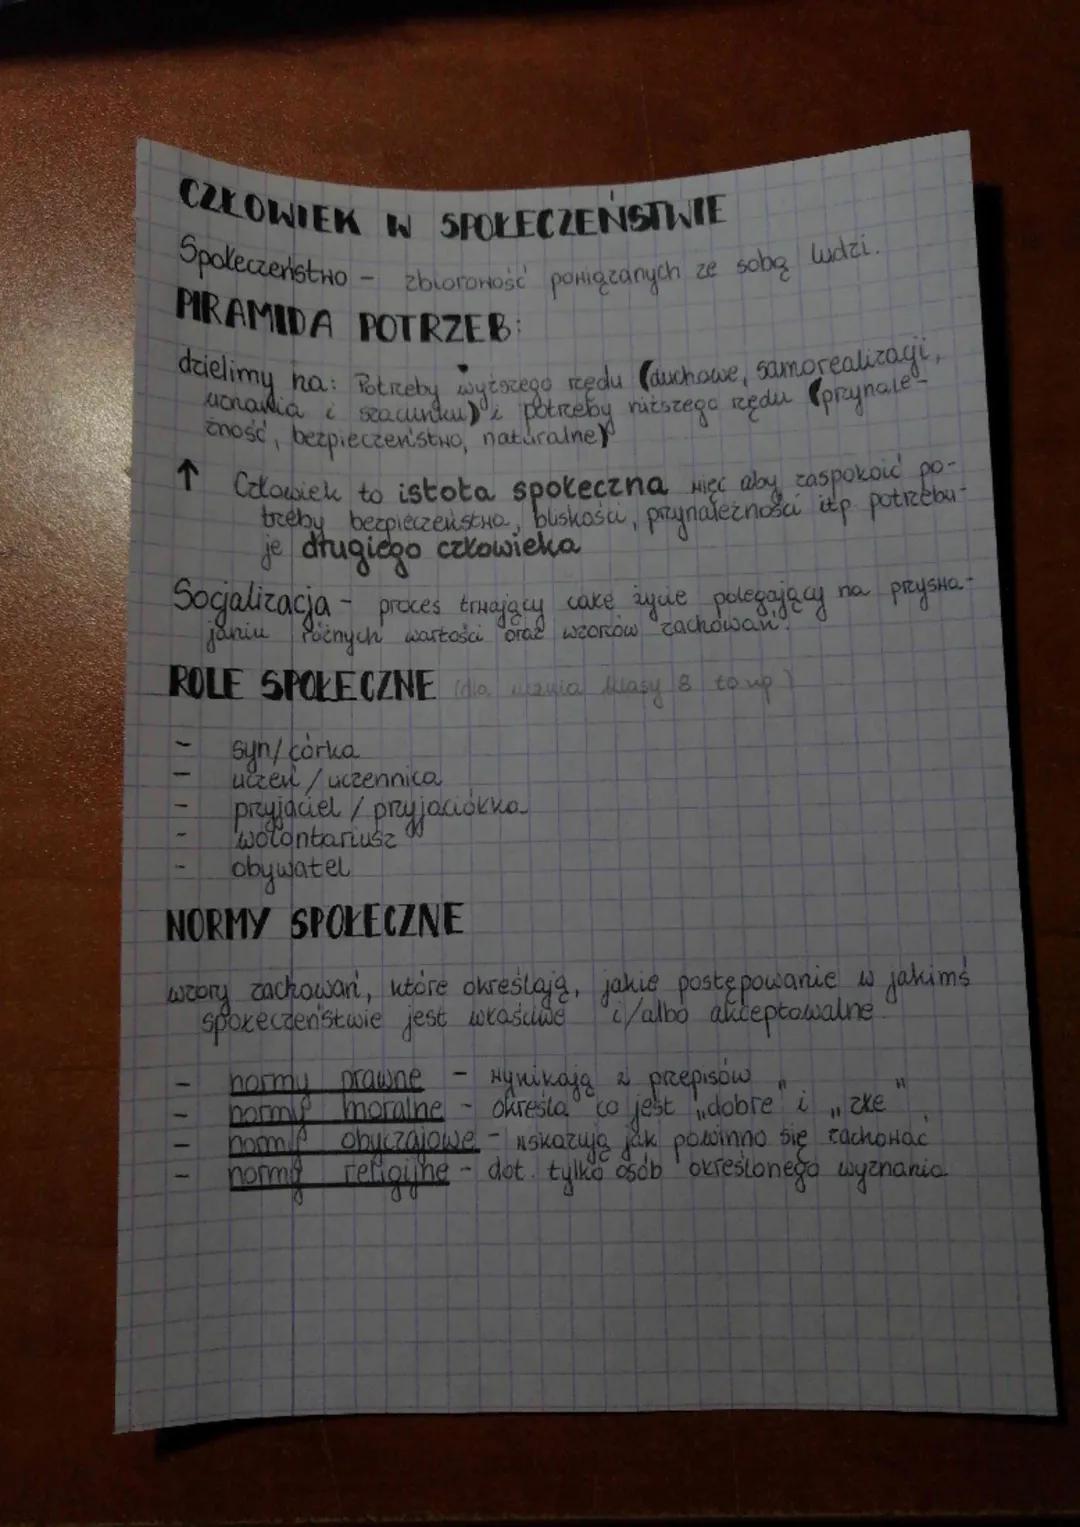 CZŁOWIEK W SPOŁECZEŃSTWIE
Społeczeństwo - zbiorowość powiązanych ze sobą ludzi.
PIRAMIDA POTRZEB:
dzielimy na: Potrzeby wyższego rzędu (duchowe, samorealizacji,
uznania i szacunku) i potrzeby niższego rzędu (przynale-
żność, bezpieczeństwo, naturalne)
↑ Człowiek to istota społeczna więc aby zaspokoić po-
trzeby bezpieczeństwa, bliskości, przynależności itp. potrzebu-
je drugiego człowieka
Socjalizacja - proces trwający całe życie polegający na przyswa-
janiu różnych wartości oraz wzorów zachowań.
ROLE SPOŁECZNE (dla ucznia klasy 8 to np)
- syn/córka
- uczeń/uczennica
- przyjaciel / przyjaciółka
- wolontariusz
- obywatel
NORMY SPOŁECZNE
wzory zachowań, które określają, jakie postępowanie w jakimś
społeczeństwie jest właściwe i/albo akceptowalne
- normy prawne - wynikają z przepisów
- normy moralne - określa co jest „dobre" i „złe"
- normy obyczajowe - wskazują jak powinno się zachować
- normy religijne - dot. tylko osób określonego wyznania